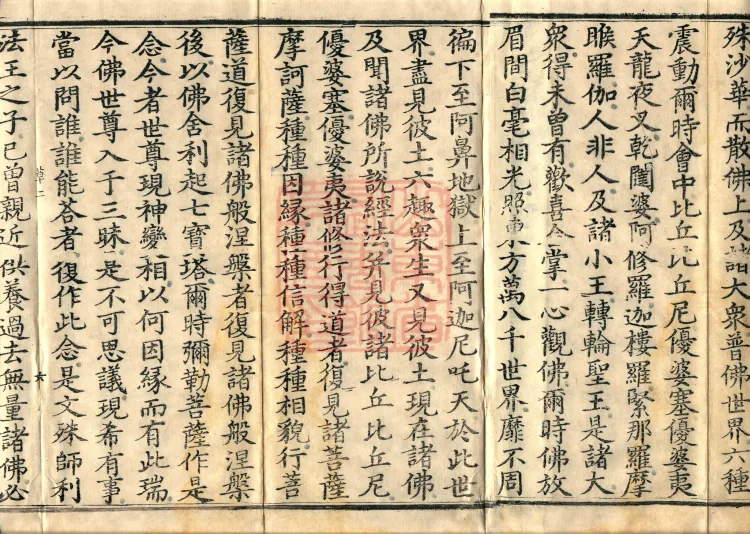 殊沙華而散佛上及諸大衆普佛世界六種
震動爾時會中比丘比丘尼優婆塞優婆夷
天龍夜叉乾闥婆阿修羅迦樓羅緊那羅摩
睺羅伽人非人及諸小王轉輪聖王是諸大
衆得未曾有歡喜合掌一心觀佛爾時佛放
眉間白毫相光照東方萬八千世界靡不周
徧下至阿鼻地獄上至阿迦尼吒天於此世
界盡見彼土六趣衆生又見彼土現在諸佛
及聞諸佛所說經法并見彼諸比丘比丘尼
優婆塞優婆夷諸修行得道者復見諸菩薩
摩訶薩種種因緣種種信解種種相貌行菩
薩道復見諸佛般涅槃者復見諸佛般涅槃
後以佛舍利起七寶塔爾時彌勒菩薩作是
念今者世尊現神變相以何因緣而有此瑞
今佛世尊入于三昧是不可思議現希有事
當以問誰誰能荅者復作此念是文殊師利
法王之子已曾親近供養過去無量諸佛必